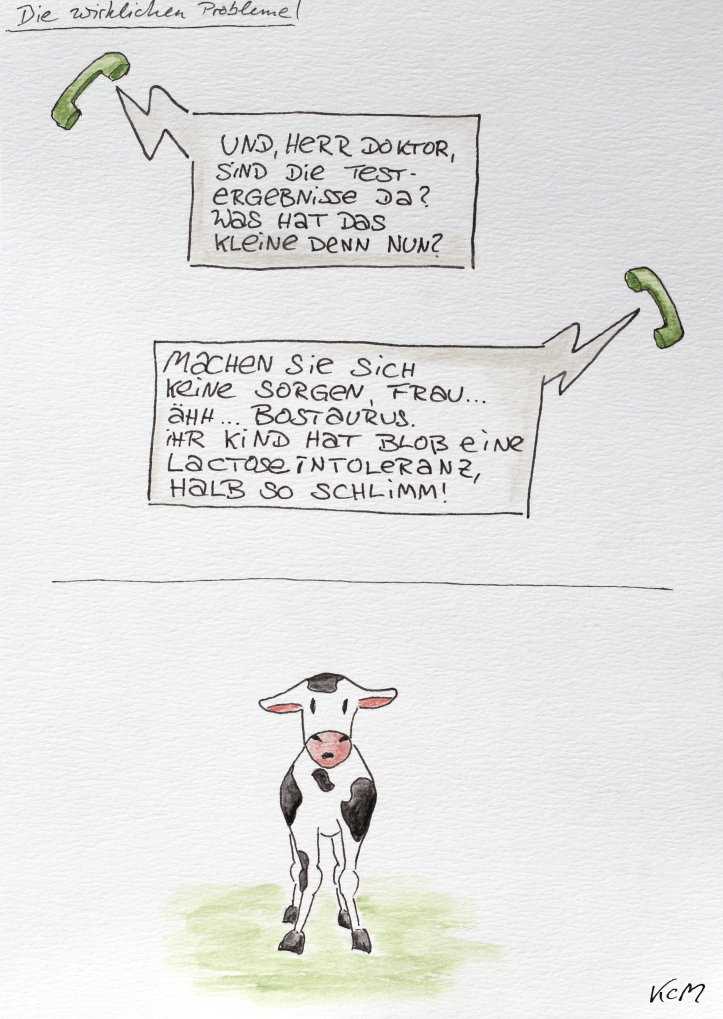 Die wirklichen Probleme!
UND, HERR DOKTOR,
SIND DIE TEST-
ERGEBNISSE DA?
WAS HAT DAS
KLEINE DENN NUN?
MACHEN SIE SICH
KEINE SORGEN, FRAU...
ÄHH... BOSTAURUS.
IHR KIND HAT BLOß EINE
LACTOSEINTOLERANZ,
HALB SO SCHLIMM!
KCM